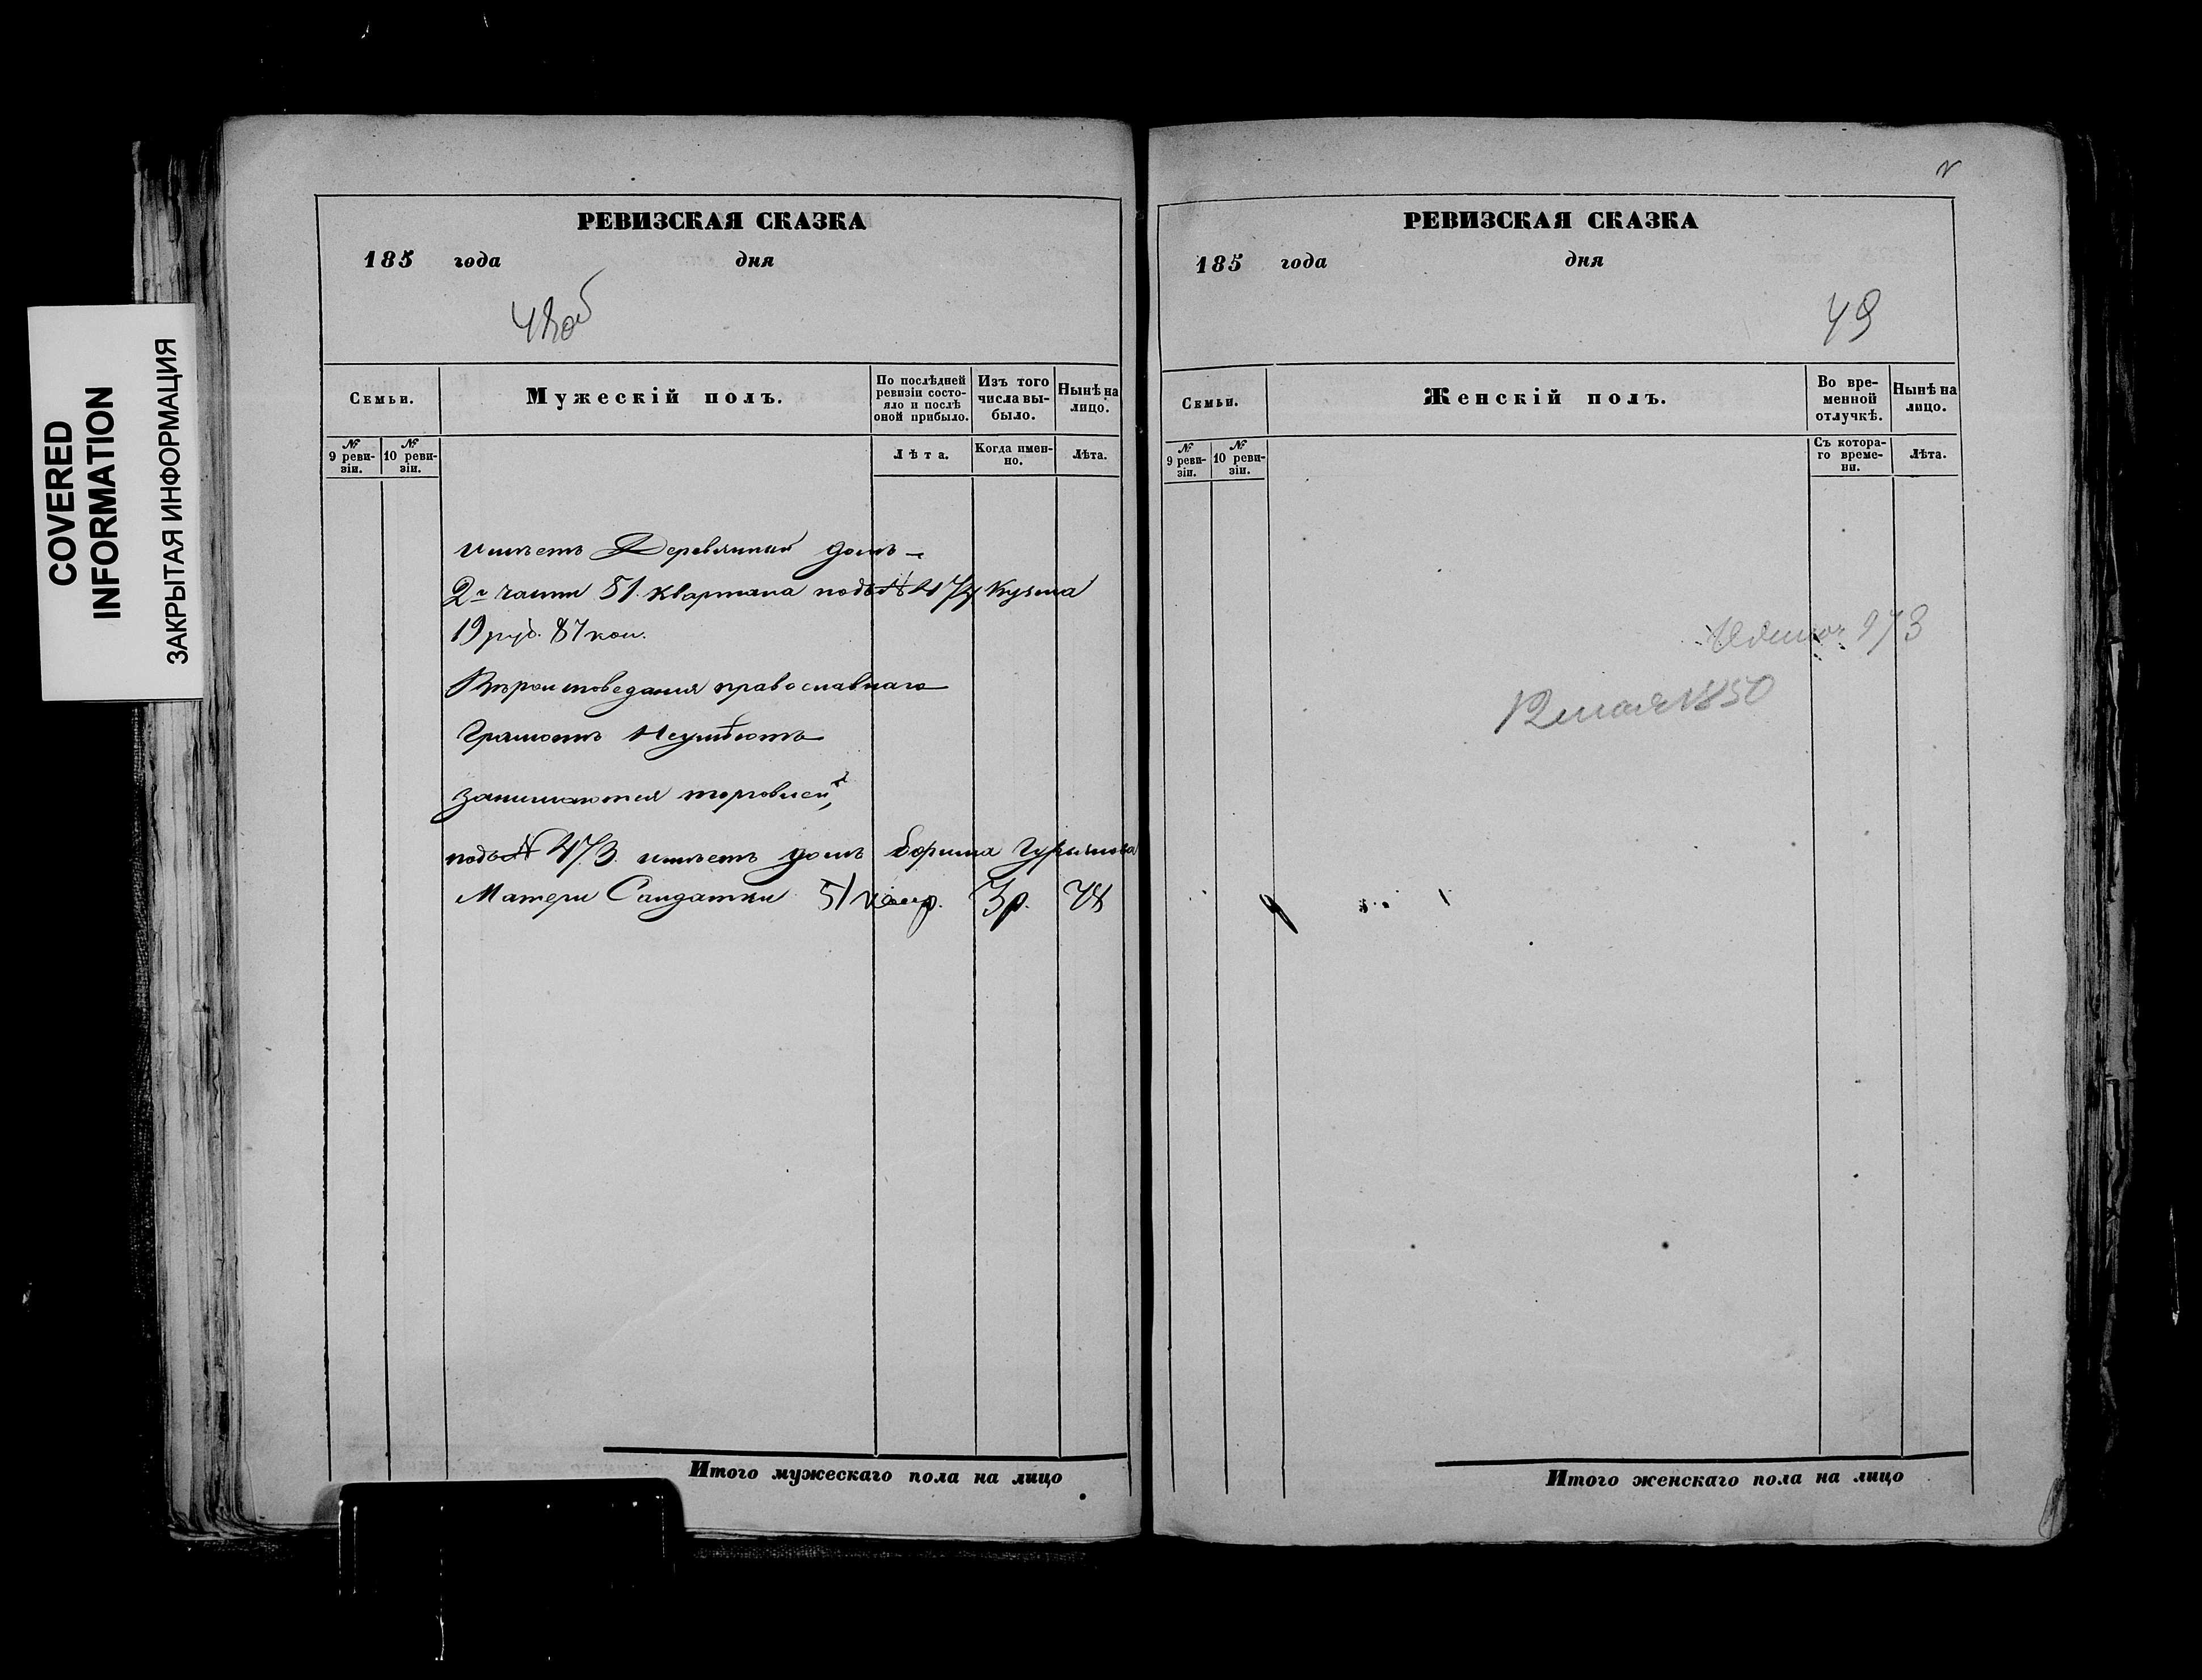 COVERED
INFORMATION
ЗАКРЫТАЯ ИНФОРМАЦИЯ
РЕВИЗСКАЯ СКАЗКА
185 года дня
48об
Семьи.
Мужескій полъ.
По послѣдней ревизіи состояло и послѣ оной прибыло.
Изъ того числа выбыло.
Нынѣ на лицо.
№ 9 ревизіи.
№ 10 ревизіи.
Лѣта.
Когда именно.
Лѣта.
имѣетъ Деревянный домъ
2й части 51 квартала подъ № 474 Кузьма
19 руб. 87 коп.
Вѣроисповеданія православнаго
Грамотѣ Неумѣютъ
занимаются торговлей
подъ № 473 имѣетъ домъ
Матери Салдатки 51 3р. 48
Итого мужескаго пола на лицо
РЕВИЗСКАЯ СКАЗКА
185 года дня
49
Семьи.
Женскій полъ.
Во временной отлучкѣ.
Нынѣ на лицо.
№ 9 ревизіи.
№ 10 ревизіи.
Съ котораго времени.
Лѣта.
973
12 мая 1850
Итого женскаго пола на лицо